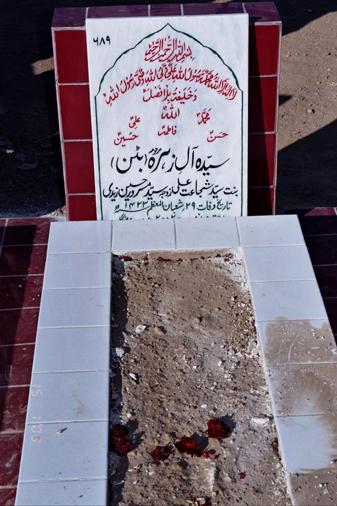 ۶۸۹
بسم اللہ الرحمن الرحیم
لا الہ الا اللہ محمد رسول اللہ علی ولی اللہ وصی رسول اللہ
و خلیفتہ بلا فصل
اللہ
محمد علی
فاطمہ
حسن حسین
سیدہ آل زہرہ (بٹن)
بنت سید شجاعت علی زوجہ سید سرور حسین زیدی
تاریخ وفات ۲۹ شعبان المعظم ۱۴۲۲ھ